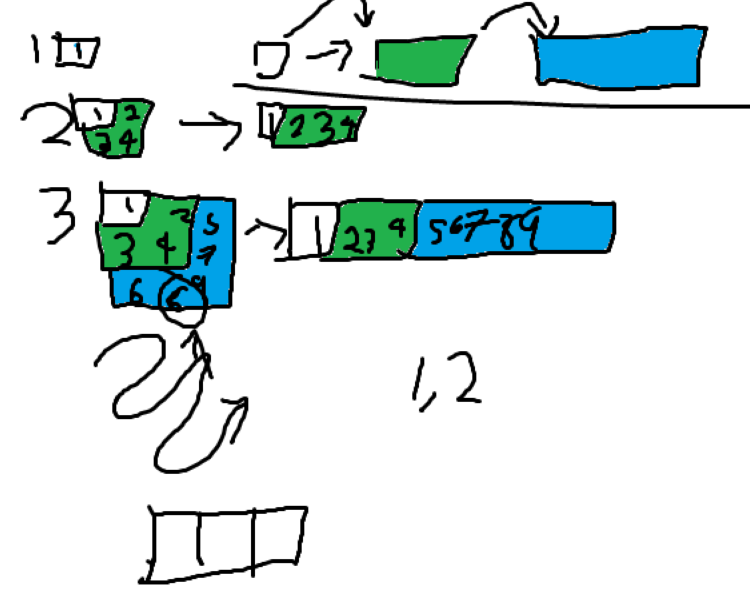 1 1
2 1 2
3 4
1 2 3 4
3 1 2 5
3 4 7
6 8 9
1 2 3 4 5 6 7 8 9
1, 2